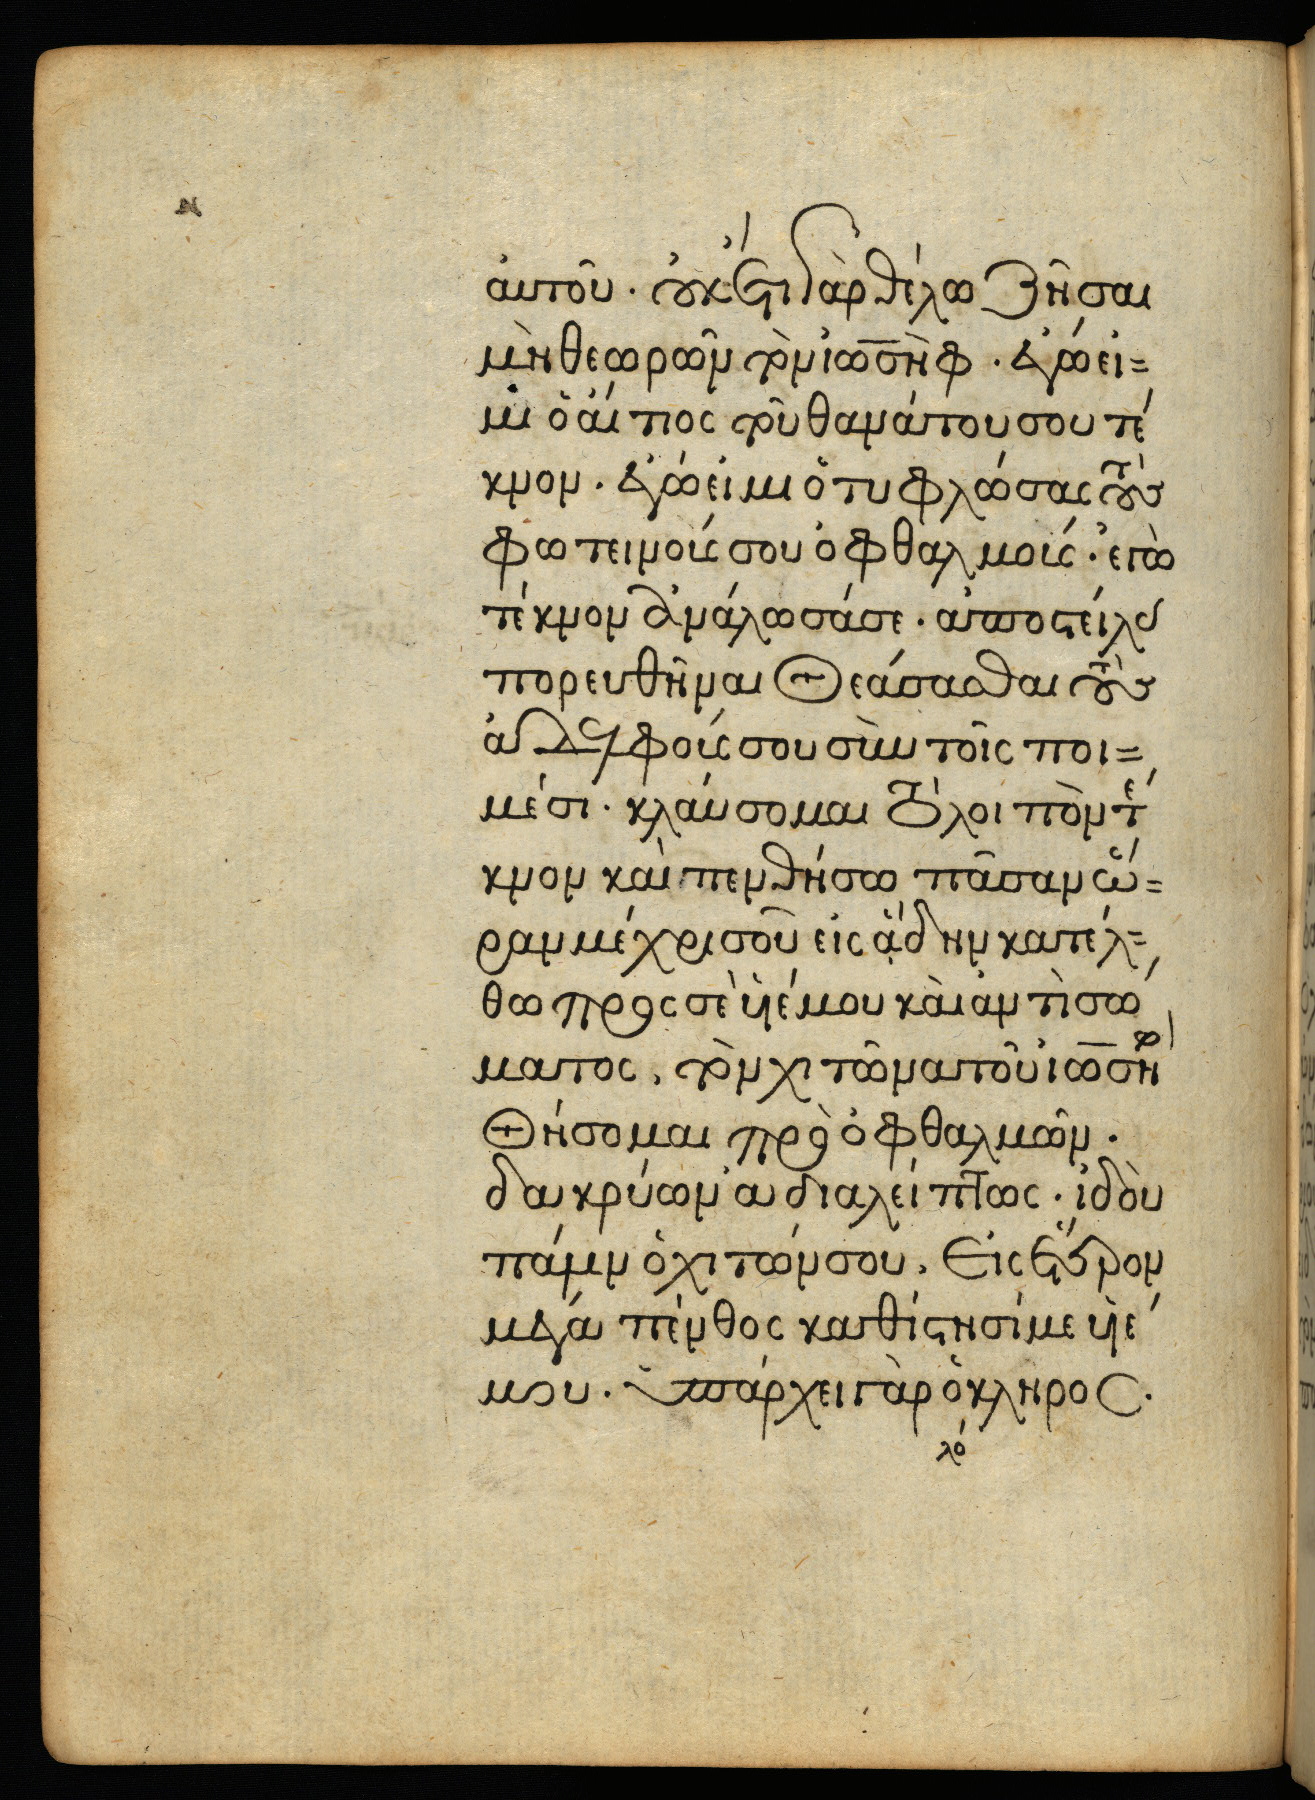 αὐτοῦ. οὐκέτι γὰρ θέλω ζῆσαι
μὴ θεωρῶν τὸν ἰωσὴφ. ἐγώ εἰ=
μι ὁ αἴτιος τοῦ θανάτου σου τέ
κνον. ἐγώ εἰμι ὁ τυφλώσας τοὺς
φωτεινούς σου ὀφθαλμούς. ἐγὼ
τέκνον ἀνάλωσά σε. ἀποστείλας
πορευθῆναι θεάσασθαι τοὺς
ἀδελφούς σου σὺν τοῖς ποι=
μέσι. κλαύσομαι τὸ λοιπὸν τέ
κνον καὶ πενθήσω πᾶσαν ὥ=
ραν μέχρις οὗ εἰς ᾅδην κατέλ=
θω πρὸς σὲ υἱέ μου καὶ ἀντὶ σώ
ματος, τὸν χιτῶνα τοῦ ἰωσὴφ
θήσομαι πρὸ ὀφθαλμῶν.
δακρύων ἀδιαλείπτως. ἰδοὺ
πάλιν ὁ χιτών σου, εἰς ἕτερον
μέγα πένθος καθίστησί με υἱέ
μου. ὑπάρχει γὰρ ὁ κληρος.
λό